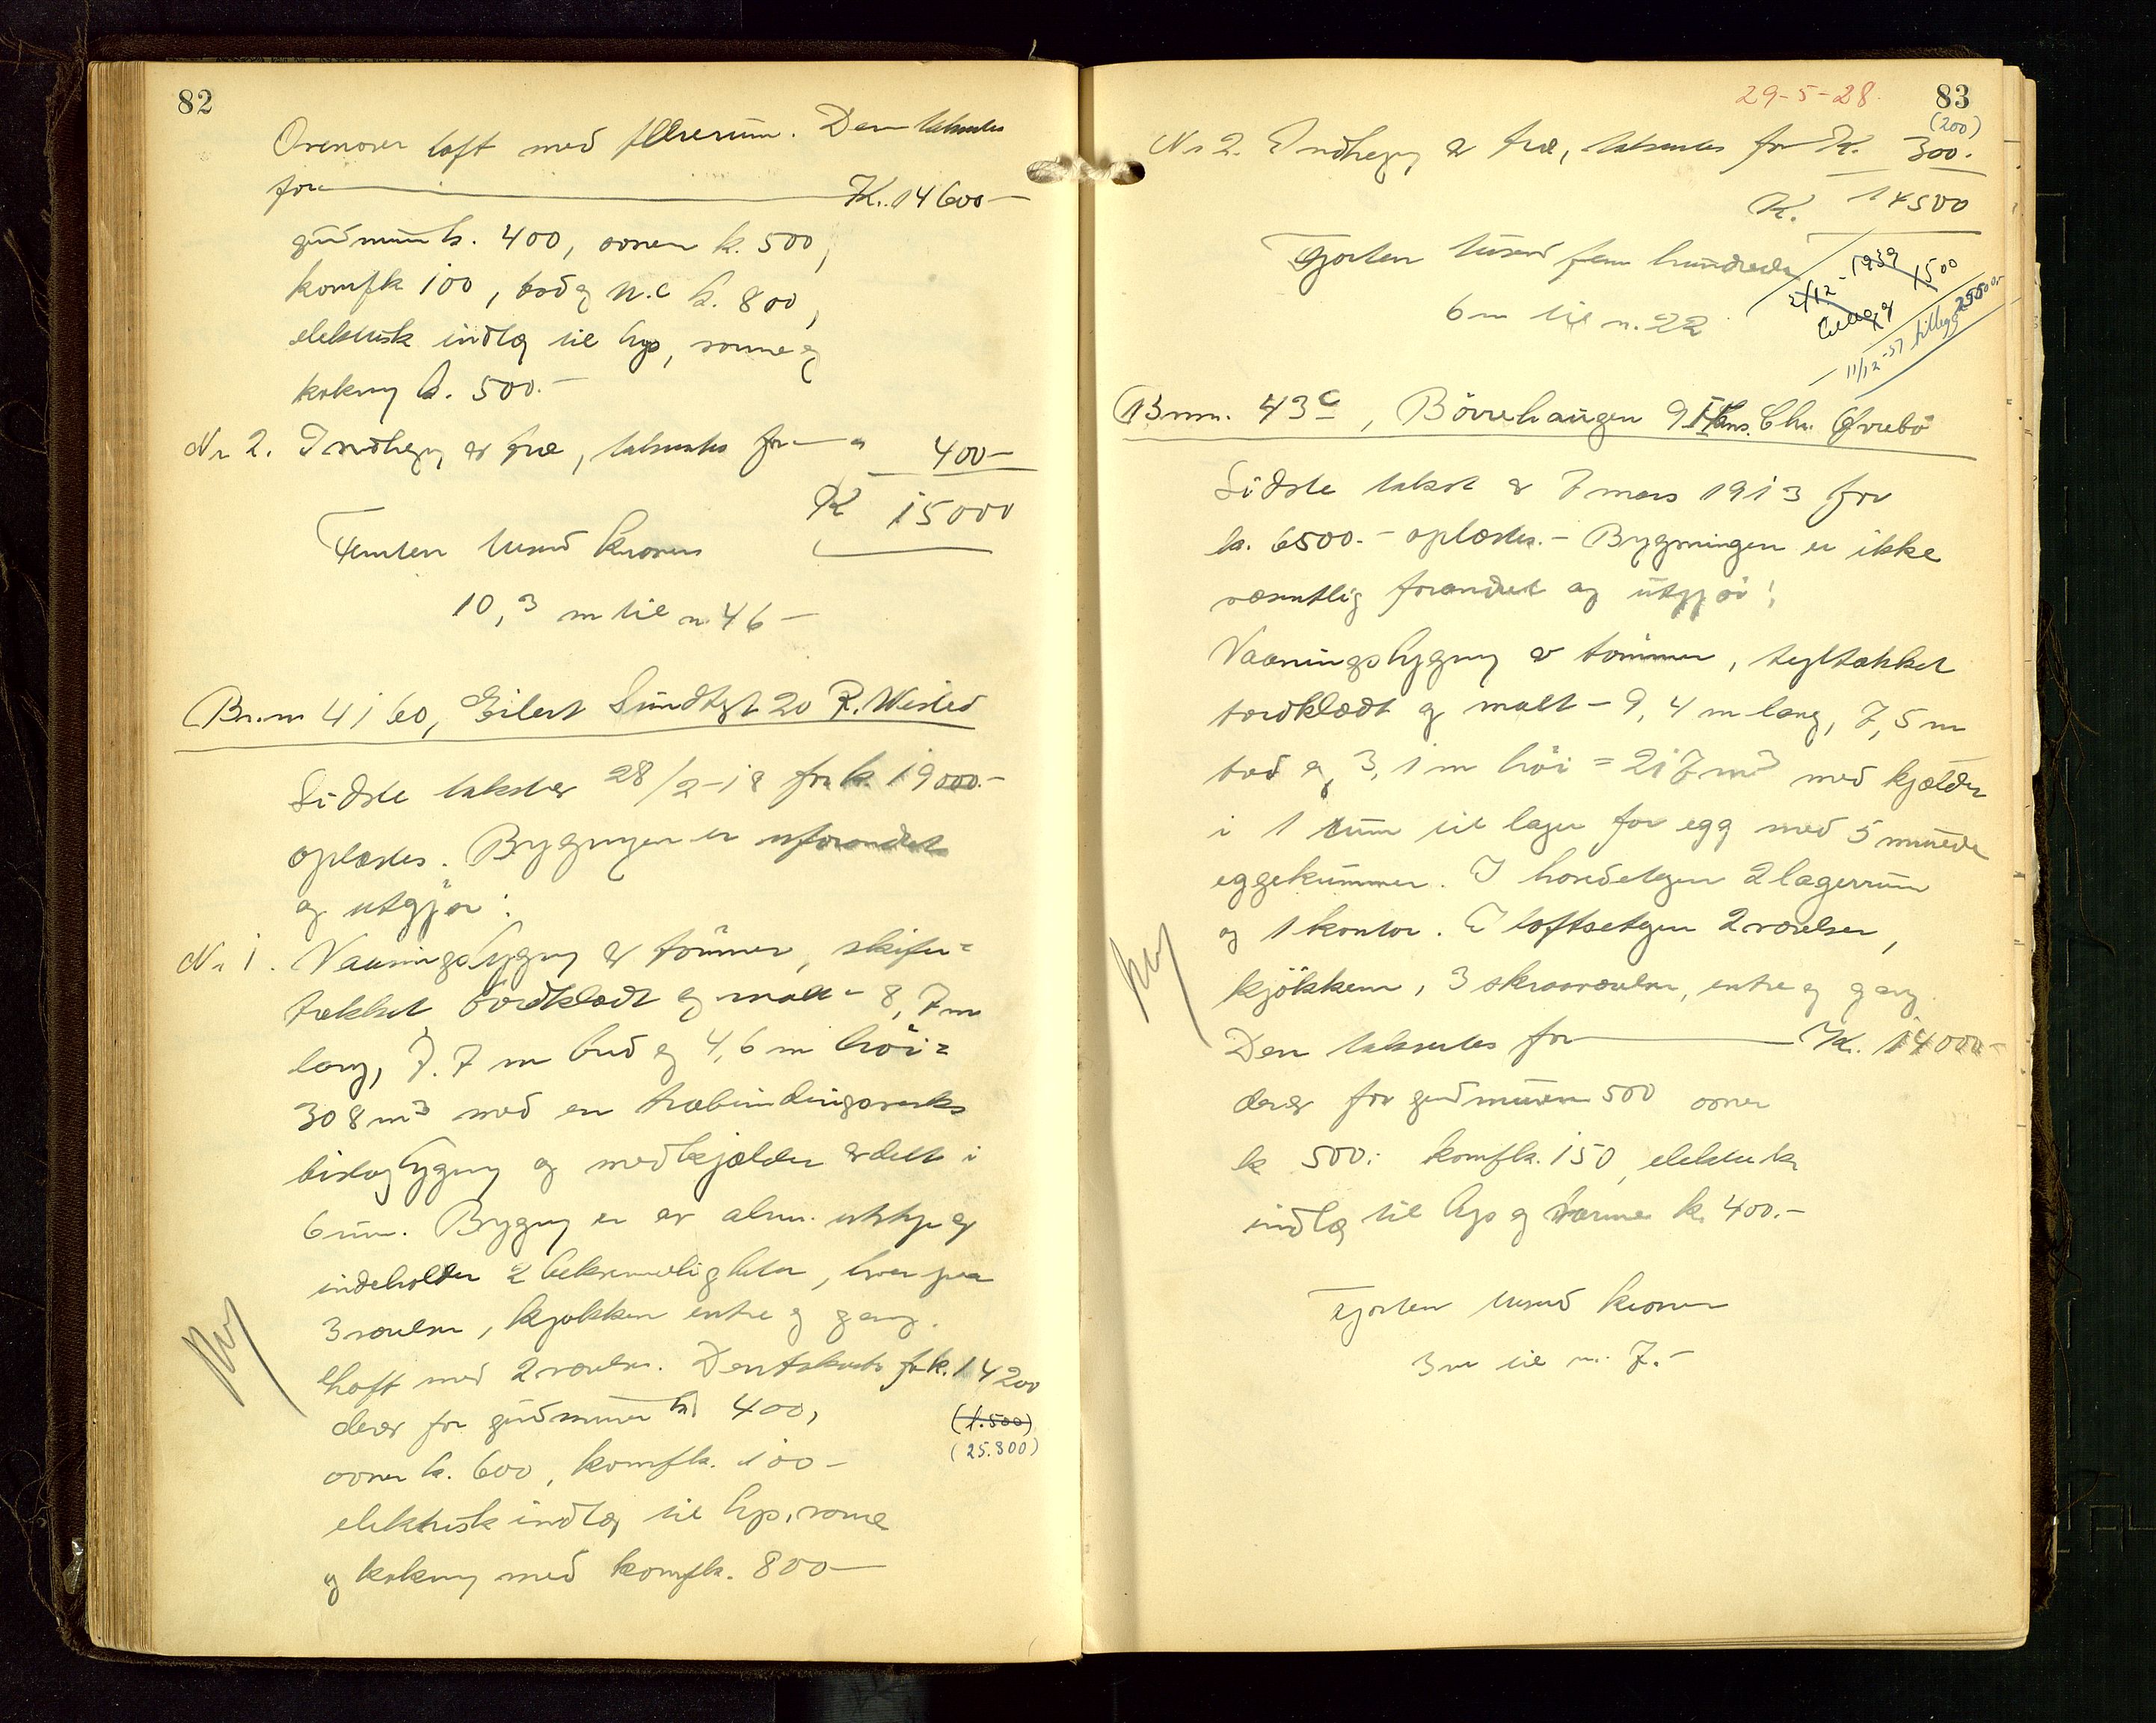 82
Ovenover loft med flererum. Den taksertes
for K. 14600-
grundmur k. 400, ovner k. 500,
komf k 100, bod og W.C k. 800,
elektrisk indlæg til lys, varme og
kokning k. 500.-
Nr 2. Indhegn av træ, taksertes for - " 400-
K 15000
Femten tusend kroner
10,3 m til n. 46 -
Br.nr 4160, Eilert Sundtsgt 20 R. Wisted
Sidste takst er 28/2-18 for k. 19000.-
oplæstes. Bygningen er uforandret
og utgjør:
Nr 1. Vaaningsbygning av tömmer, skifer-
tækket bordklædt og malt - 8,7 m
lang, 7.7 m bred og 4,6 m höi =
308 m3 med en træbindingsverks
bislagbygning og med kjælder avdelt i
6 rum. Bygning er av alm. utstyr og
indeholder 2 bekvemmeligheter, hver paa
3 værelser, kjøkken entre og gang.
Loft med 2 værelser. Den taksertes for k. 14200
derav for grundmurer k 400, (1.500)
ovner k. 600, komf k. 100- (25.300)
elektrisk indlæg til lys, varme
og kokning med komf k. 800-
29-5-28.
83
(200)
Nr 2. Indhegn av træ, taksertes for K. 300.-
K. 14500
Fjorten tusend fem hundrede
6 m til n. 22
2/12-1939 1500
tillegg
11/12-57 tillegg 25000
Br.nr. 43c, Bövrehaugen 9 Hans. Chr. Övrebö
Sidste takst er 7 mars 1913 for
k. 6500.- oplæstes.- Bygningen er ikke
væsentlig forandret og utgjör:
Vaaningsbygning av tömmer, tegltækket
bordklædt og malt - 9,4 m lang, 7,5 m
bred og 3,1 m höi = 217 m3 med kjælder
i 1 rum til lager for egg med 5 murede
eggekummer. I hovedetagen 2 lagerrum
og 1 kontor. I loftsetagen 2 værelser,
kjökken, 3 skraaværelser, entre og gang.
Den taksertes for K. 14000-
derav for grundmuren 500 ovner
k 500: komf k. 150, elektrisk
indlæg til lys og varme k. 400.-
Fjorten tusend kroner
3 m til n. 7.-